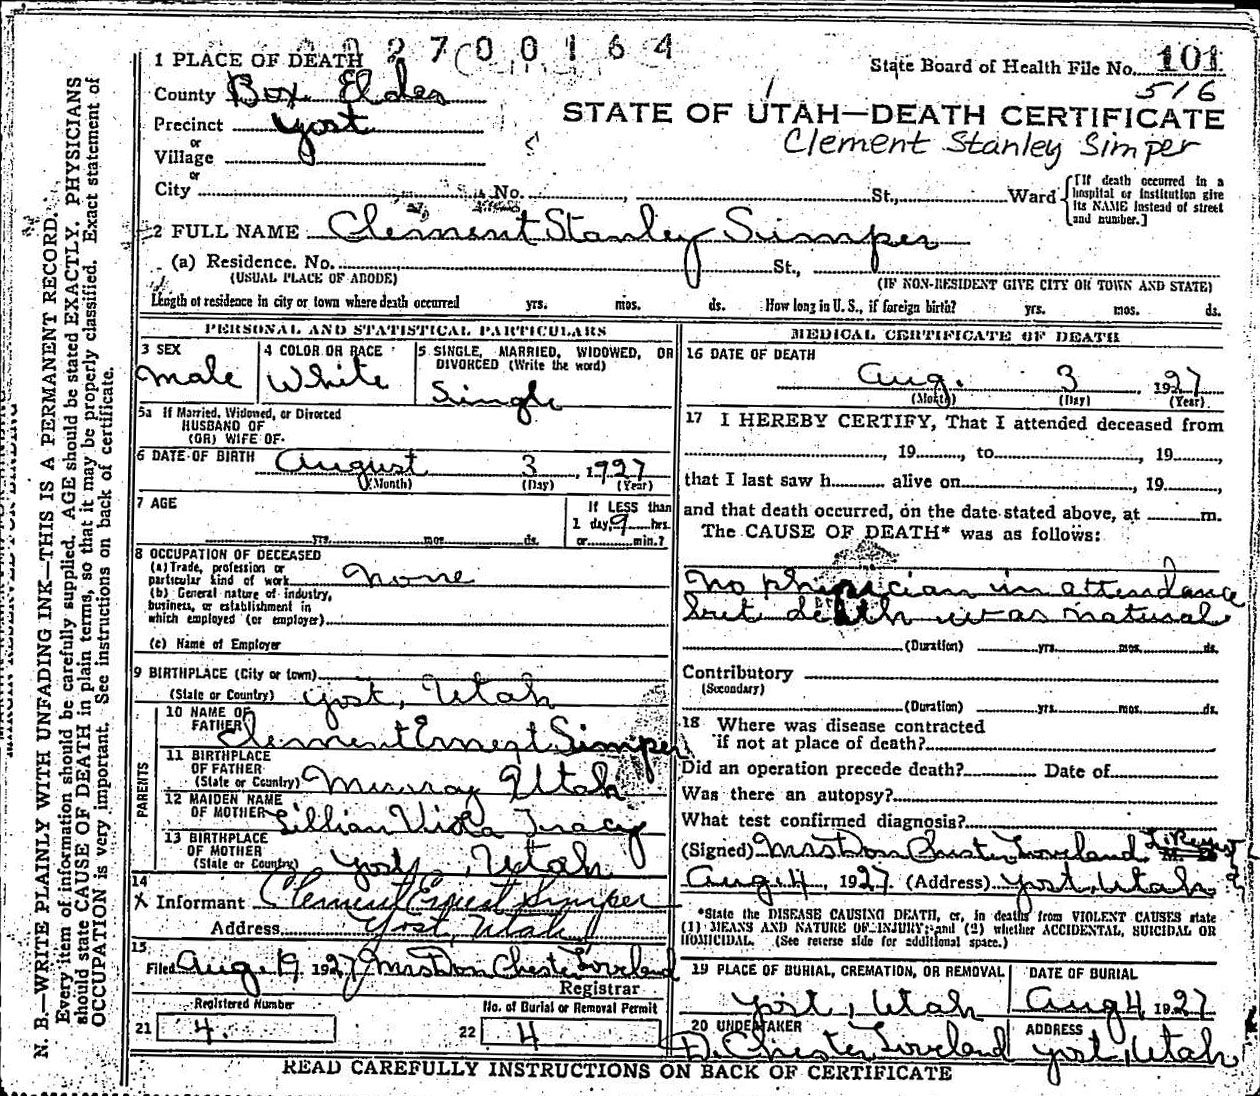 2700164
1 PLACE OF DEATH
State Board of Health File No. 101
516
County Box Elder
STATE OF UTAH—DEATH CERTIFICATE
Precinct Yost
Clement Stanley Simper
or
Village
or
City No. St., Ward
[If death occurred in a
hospital or institution give
its NAME instead of street
and number.]
2 FULL NAME Clement Stanley Simper
(a) Residence. No. St.,
(USUAL PLACE OF ABODE) (IF NON-RESIDENT GIVE CITY OR TOWN AND STATE)
Length of residence in city or town where death occurred yrs. mos. ds. How long in U. S., if foreign birth? yrs. mos. ds.
PERSONAL AND STATISTICAL PARTICULARS
3 SEX
Male
4 COLOR OR RACE
White
5 SINGLE, MARRIED, WIDOWED, OR
DIVORCED (Write the word)
Single
5a If Married, Widowed, or Divorced
HUSBAND OF
(OR) WIFE OF
6 DATE OF BIRTH August 3, 1927
(Month) (Day) (Year)
7 AGE
yrs. mos. ds.
If LESS than
1 day, 9 hrs.
or min.?
8 OCCUPATION OF DECEASED
(a) Trade, profession or
particular kind of work none
(b) General nature of industry,
business, or establishment in
which employed (or employer)
(c) Name of Employer
9 BIRTHPLACE (City or town)
(State or Country) Yost, Utah
PARENTS
10 NAME OF
FATHER Clement Ernest Simper
11 BIRTHPLACE
OF FATHER
(State or Country) Murray Utah
12 MAIDEN NAME
OF MOTHER Lillian Viola Tracy
13 BIRTHPLACE
OF MOTHER
(State or Country) Yost, Utah
14
X Informant Clement Ernest Simper
Address Yost, Utah
15
Filed Aug. 19, 1927 Mrs Don Chester Loveland
Registrar
Registered Number
21 4.
No. of Burial or Removal Permit
22 4
MEDICAL CERTIFICATE OF DEATH
16 DATE OF DEATH
Aug. 3, 1927
(Month) (Day) (Year)
17 I HEREBY CERTIFY, That I attended deceased from
, 19 , to , 19 ,
that I last saw h alive on , 19 ,
and that death occurred, on the date stated above, at m.
The CAUSE OF DEATH* was as follows:
No physician in attendance
but death was natural
(Duration) yrs. mos. ds.
Contributory
(Secondary)
(Duration) yrs. mos. ds.
18 Where was disease contracted
if not at place of death?
Did an operation precede death? Date of
Was there an autopsy?
What test confirmed diagnosis?
(Signed) Mrs Don Chester Loveland M. D.
Aug. 4, 1927 (Address) Yost, Utah
*State the DISEASE CAUSING DEATH, or, in deaths from VIOLENT CAUSES state
(1) MEANS AND NATURE OF INJURY; and (2) whether ACCIDENTAL, SUICIDAL OR
HOMICIDAL. (See reverse side for additional space.)
19 PLACE OF BURIAL, CREMATION, OR REMOVAL
Yost, Utah
DATE OF BURIAL
Aug 4, 1927
20 UNDERTAKER
D. Chester Loveland
ADDRESS
Yost, Utah
READ CAREFULLY INSTRUCTIONS ON BACK OF CERTIFICATE
N. B.—WRITE PLAINLY WITH UNFADING INK—THIS IS A PERMANENT RECORD.
Every item of information should be carefully supplied. AGE should be stated EXACTLY. PHYSICIANS
should state CAUSE OF DEATH in plain terms, so that it may be properly classified. Exact statement of
OCCUPATION is very important. See instructions on back of certificate.